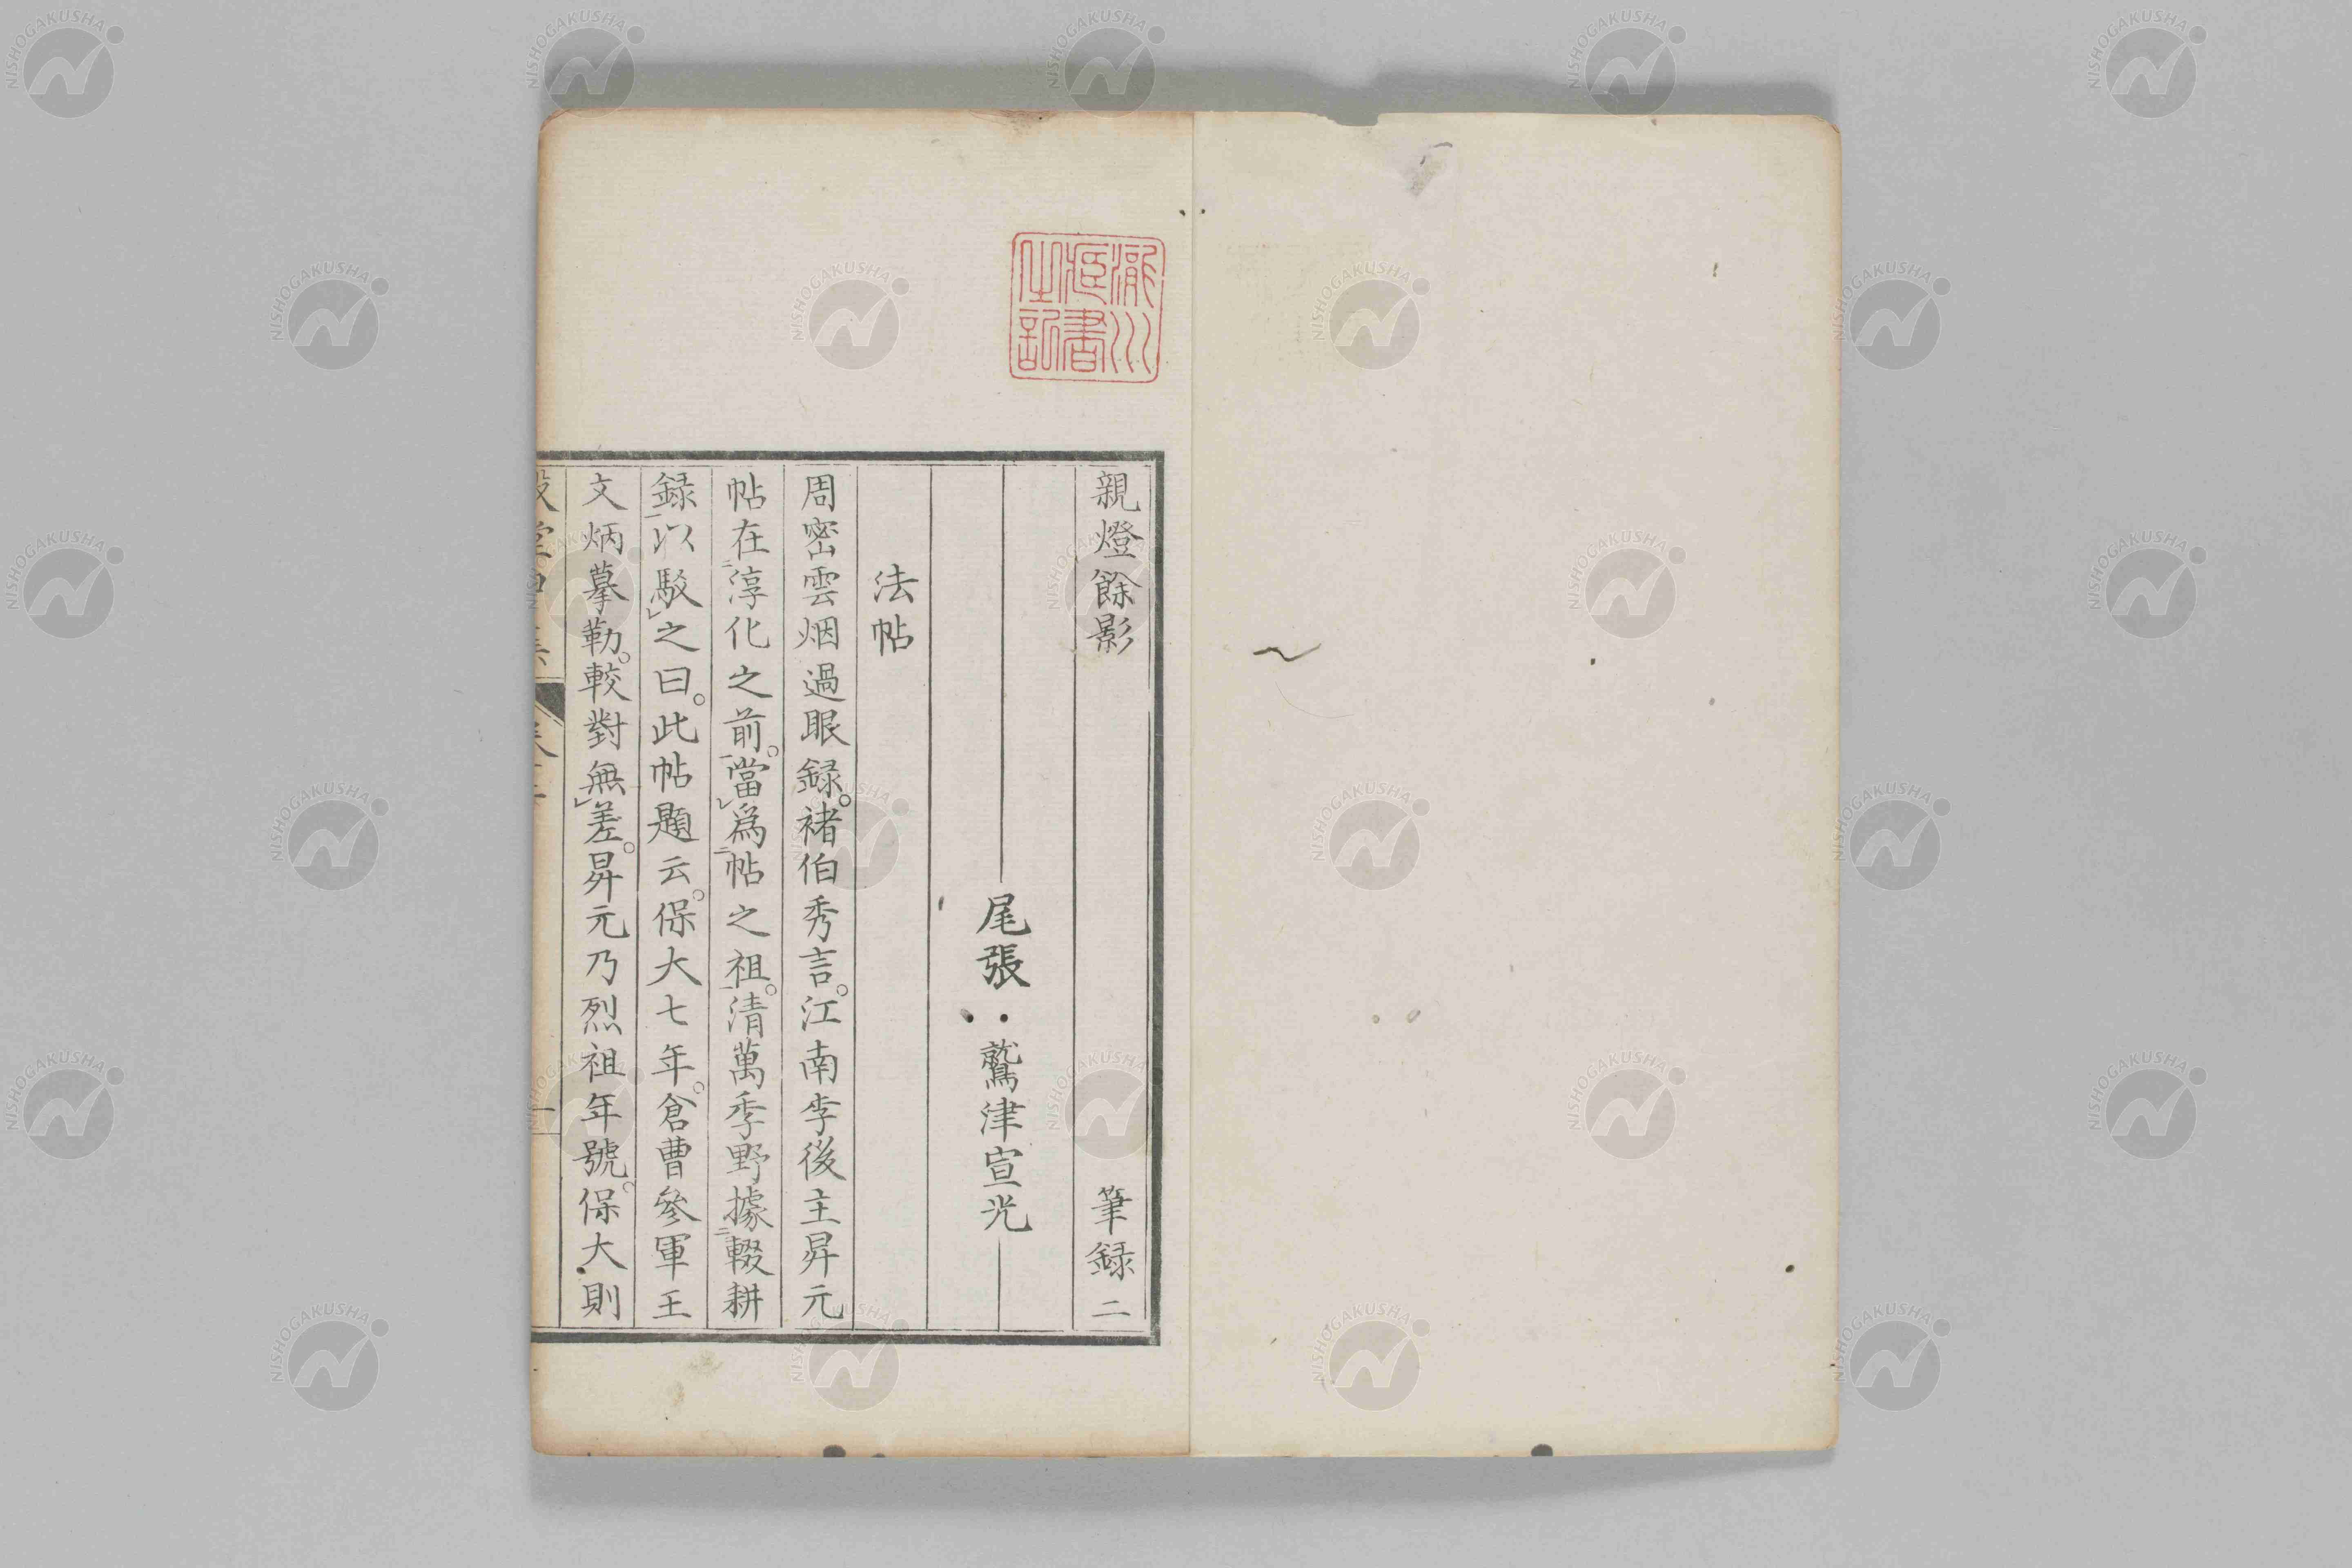 親燈餘影 筆録二
尾張 鷲津宣光
法帖
周密雲烟過眼録。褚伯秀言。江南李後主昇元
帖在淳化之前。當爲帖之祖。清萬季野據輟耕
録以駁之曰。此帖題云。保大七年。倉曹參軍王
文炳摹勒。較對無差。昇元乃烈祖年號。保大則
瀧川臧書之記
NISHOGAKUSHA